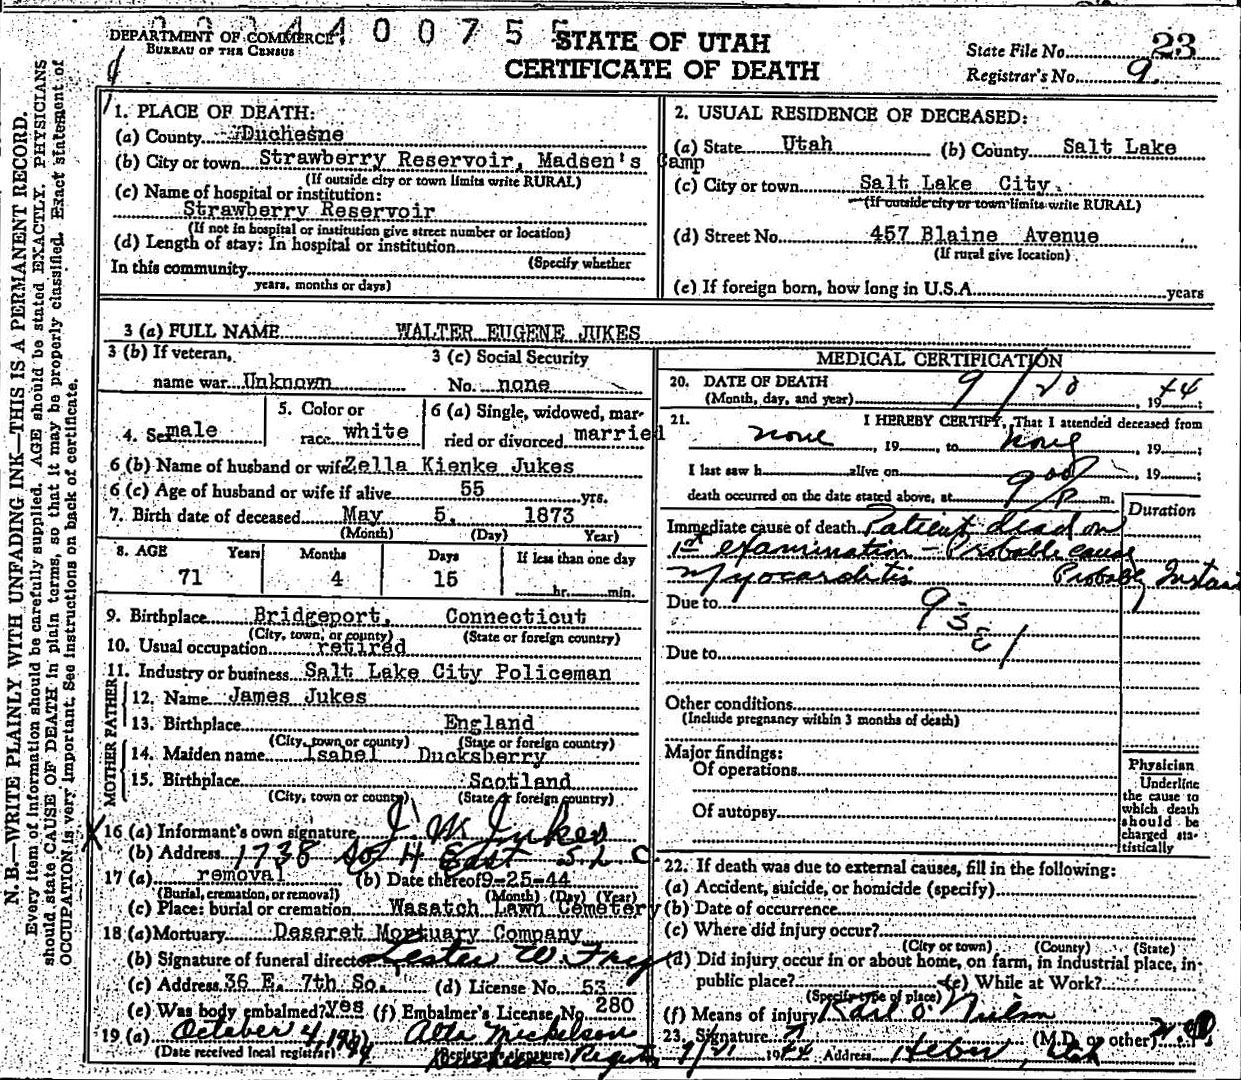 DEPARTMENT OF COMMERCE
BUREAU OF THE CENSUS
STATE OF UTAH
CERTIFICATE OF DEATH
State File No. 23
Registrar's No. 9
N. B.—WRITE PLAINLY WITH UNFADING INK—THIS IS A PERMANENT RECORD.
Every item of information should be carefully supplied. AGE should be stated EXACTLY. PHYSICIANS
should state CAUSE OF DEATH in plain terms, so that it may be properly classified. Exact statement of
OCCUPATION is very important. See instructions on back of certificate.
1. PLACE OF DEATH:
(a) County Duchesne
(b) City or town Strawberry Reservoir, Madsen's Camp
(If outside city or town limits write RURAL)
(c) Name of hospital or institution:
Strawberry Reservoir
(If not in hospital or institution give street number or location)
(d) Length of stay: In hospital or institution
(Specify whether
In this community
years, months or days)
2. USUAL RESIDENCE OF DECEASED:
(a) State Utah (b) County Salt Lake
(c) City or town Salt Lake City
(If outside city or town limits write RURAL)
(d) Street No. 457 Blaine Avenue
(If rural give location)
(e) If foreign born, how long in U.S.A. years
3 (a) FULL NAME WALTER EUGENE JUKES
3 (b) If veteran,
name war Unknown
3 (c) Social Security
No. none
4. Sex male
5. Color or
race white
6 (a) Single, widowed, mar-
ried or divorced married
6 (b) Name of husband or wife Zella Kienke Jukes
6 (c) Age of husband or wife if alive 55 yrs.
7. Birth date of deceased May 5, 1873
(Month) (Day) Year)
8. AGE Years Months Days If less than one day
71 4 15 hr. min.
9. Birthplace Bridgeport, Connecticut
(City, town, or county) (State or foreign country)
10. Usual occupation retired
11. Industry or business Salt Lake City Policeman
FATHER
12. Name James Jukes
13. Birthplace England
(City, town or county) (State or foreign country)
MOTHER
14. Maiden name Isabel Ducksberry
15. Birthplace Scotland
(City, town or county) (State or foreign country)
X 16 (a) Informant's own signature J. W. Jukes
(b) Address 1738 So H East S L C
17 (a) removal (b) Date thereof 9-25-44
(Burial, cremation, or removal) (Month) (Day) (Year)
(c) Place: burial or cremation Wasatch Lawn Cemetery
18 (a) Mortuary Deseret Mortuary Company
(b) Signature of funeral director Lester W. Frey
(c) Address 36 E. 7th So. (d) License No. 53
(e) Was body embalmed? yes (f) Embalmer's License No. 280
19 (a) October 4, 1944 Alta Mickelson
(Date received local registrar) (Registrar's signature)
MEDICAL CERTIFICATION
20. DATE OF DEATH 9/20, 1944;
(Month, day, and year)
21. I HEREBY CERTIFY, That I attended deceased from
none, 19 , to none, 19 ;
I last saw h alive on , 19 ;
death occurred on the date stated above, at 9 00 P m.
Duration
Immediate cause of death Patient dead on
1st examination - Probable cause
Myocarditis Probably Instant
Due to
93 E 1
Due to
Other conditions
(Include pregnancy within 3 months of death)
Major findings:
Of operations
Of autopsy
Physician
Underline
the cause to
which death
should be
charged sta-
tistically
22. If death was due to external causes, fill in the following:
(a) Accident, suicide, or homicide (specify)
(b) Date of occurrence
(c) Where did injury occur?
(City or town) (County) (State)
(d) Did injury occur in or about home, on farm, in industrial place, in
public place? (e) While at Work?
(Specify type of place)
(f) Means of injury Karl O. Nielson
23. Signature (M.D. or other)
9/21 1944 Address Heber, Utah